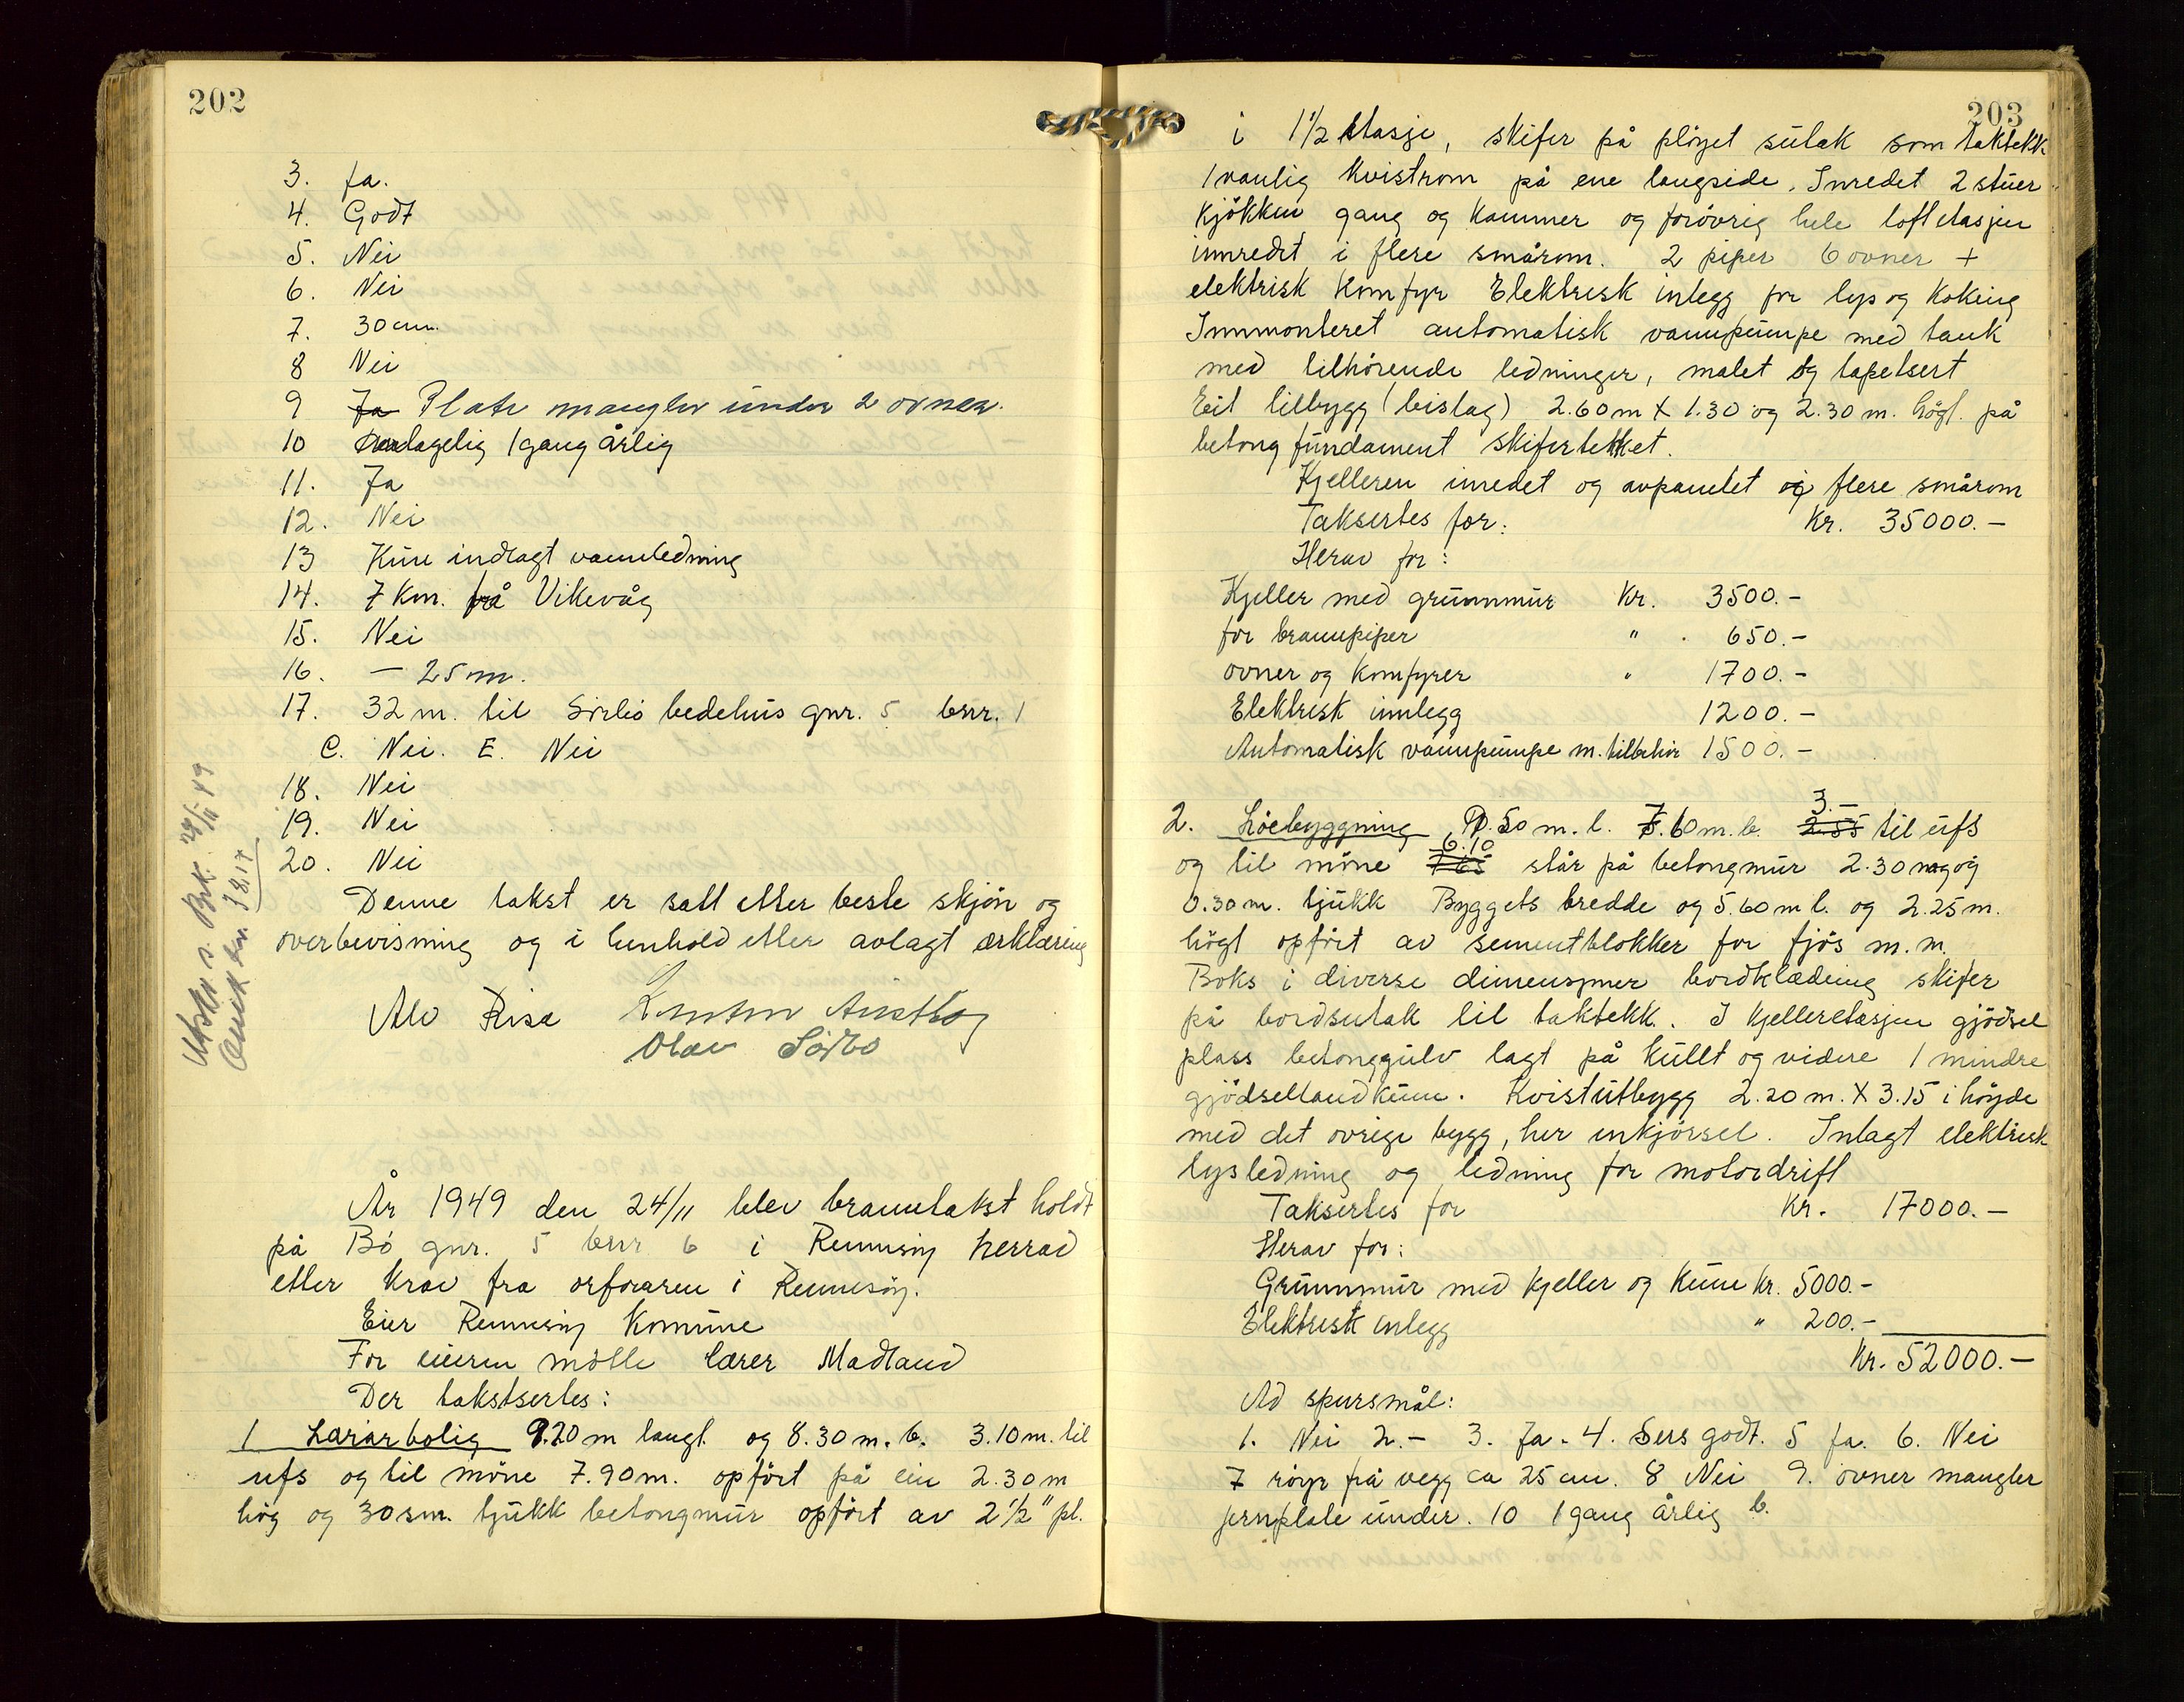 202
3. Ja.
4. Godt
5. Nei
6. Nei
7. 30 cm.
8 Nei
9 Ja Plate mangler under 2 ovner.
10 1 gang årlig
11. Ja
12. Nei
13 Kun indlagt vannledning
14. 7 Km. frå Vikevåg
15. Nei
16. — 25 m.
17. 32 m. til Sörbö bedehus gnr. 5 bnr. 1
C. Nei. E. Nei
18. Nei
19. Nei
20. Nei
Denne takst er satt etter beste skjön og
overbevisning og i henhold etter avlagt erklæring
Alv Risa
Olav Sörbö
Utskr. s. Brk. 24/11 49
År 1949 den 24/11 blev branntakst holdt
på Bö gnr. 5 bnr 6 i Rennesöy herrad
etter krav fra orföraren i Rennesöy.
Eier Rennesöy Komune
For eieren mötte lærer Madland
Der takstsertes:
1 Lærarbolig 9.20 m langt og 8.30 m. b. 3.10 m. til
ufs og til möne 7.90 m. opfört på ein 2.30 m
hög og 30 sm. tjukk betongmur opfört av 2 1/2" pl.
203
i 1 1/2 etasje, skifer på plöyet sutak som taktekk
1 vanlig kvistrom på ene langside. Inredet 2 stuer
kjökken gang og kammer og forövrig hele loftetasjen
innredet i flere smårom. 2 piper 6 ovner +
elektrisk komfyr Elektrisk inlegg for lys og koking
Innmonteret automatisk vannpumpe med tank
med tilhörende ledninger, malet og tapetsert
Eit tilbygg (bislag) 2.60 m x 1.30 og 2.30 m. högt. på
betong fundament skifertekket.
Kjelleren inredet og avpanelet i flere smårom
Taksertes for: Kr. 35000.-
Herav for:
Kjeller med grunnmur Kr. 3500.-
for brannpiper " 650.-
ovner og Komfyrer " 1700.-
Elektrisk innlegg 1200.-
Automatisk vannpumpe m. tilbehör 1500.-
3.-
2. Löebyggning, 50 m. l. 7.60 m. b. 2.55 til ufs
6.10
og til möne 7.65 står på betongmur 2.30 m og
0.30 m. tjukk Byggets bredde og 5.60 m l. og 2.25 m.
högt opfört av sementblokker for fjös m. m.
Boks i diverse dimensjoner bordklædning skifer
på bordsutak til taktekk. I kjelleretasjen gjödsel
plass betonggulv lagt på kullt og videre 1 mindre
gjödsellandkum. Kvistutbygg 2.20 m. x 3.15 i höyde
med det övrige bygg, her inkjörsel. Inlagt elektrisk
lysledning og ledning for motordrift
Taksertes for Kr. 17000.-
Herav for:
Grunnmur med kjeller og kum Kr. 5000.-
Elektrisk inlegg " 200.-
Kr. 52000.-
Ad spursmål:
1. Nei 2.- 3. Ja. 4. Sers godt. 5 Ja. 6. Nei
7 röyr frå vegg ca 25 cm. 8 Nei 9. ovner mangler
jernplate under. 10 1 gang årlig b.